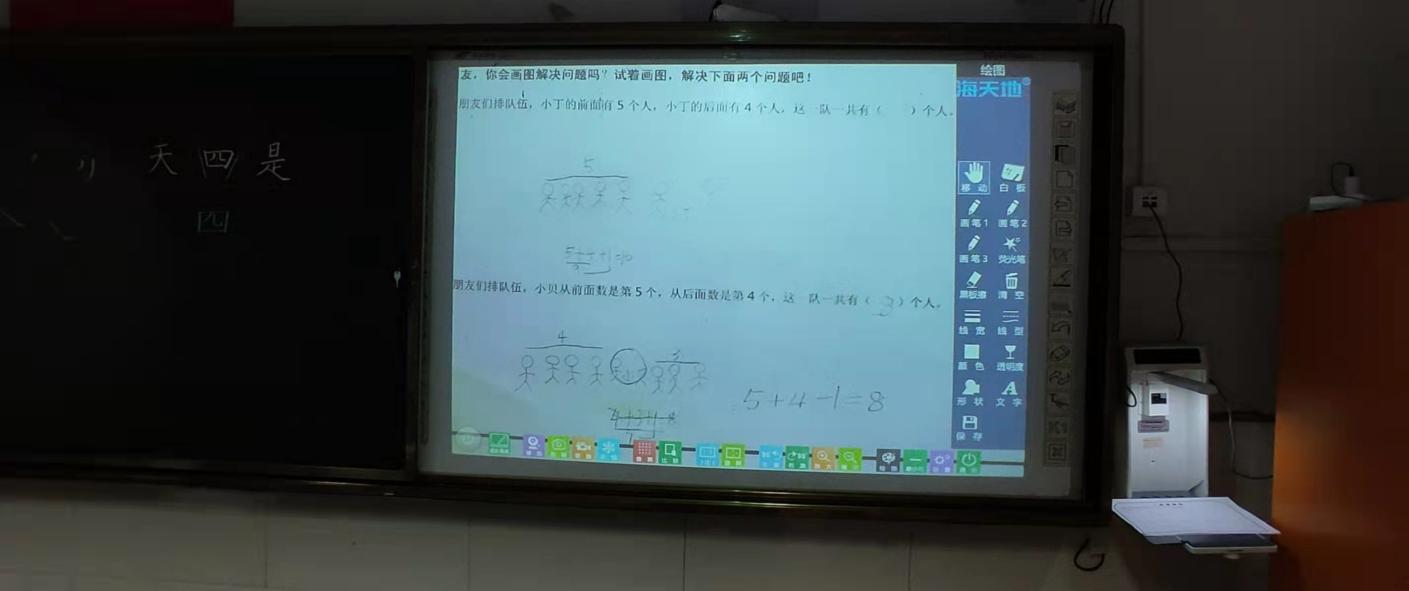 天四是
四
友，你会画图解决问题吗？试着画图，解决下面两个问题吧！
朋友们排队伍，小丁的前面有5个人，小丁的后面有4个人，这一队一共有（ ）个人。
5
5+4+1=10
朋友们排队伍，小贝从前面数是第5个，从后面数是第4个，这一队一共有（8）个人。
4
3
4+3+1=8
7
5+4-1=8
绘图
海天地
移动 白板
画笔1 画笔2
画笔3 荧光笔
黑板擦 清空
线宽 线型
颜色 透明度
形状 文字
保存